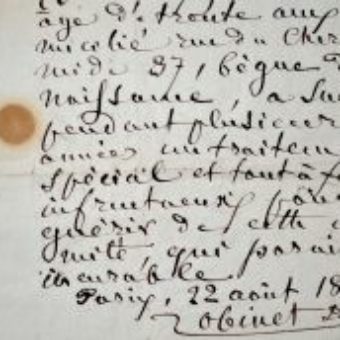 âgé de trente ans
micilié rue du Cher
midi 37, bègue d
naissance, a su
pendant plusieurs
années un traitem
spécial et tout à f
infructueux pour
guérir de cette
mité, qui parai
incurable
Paris, 22 août 18
Robinet